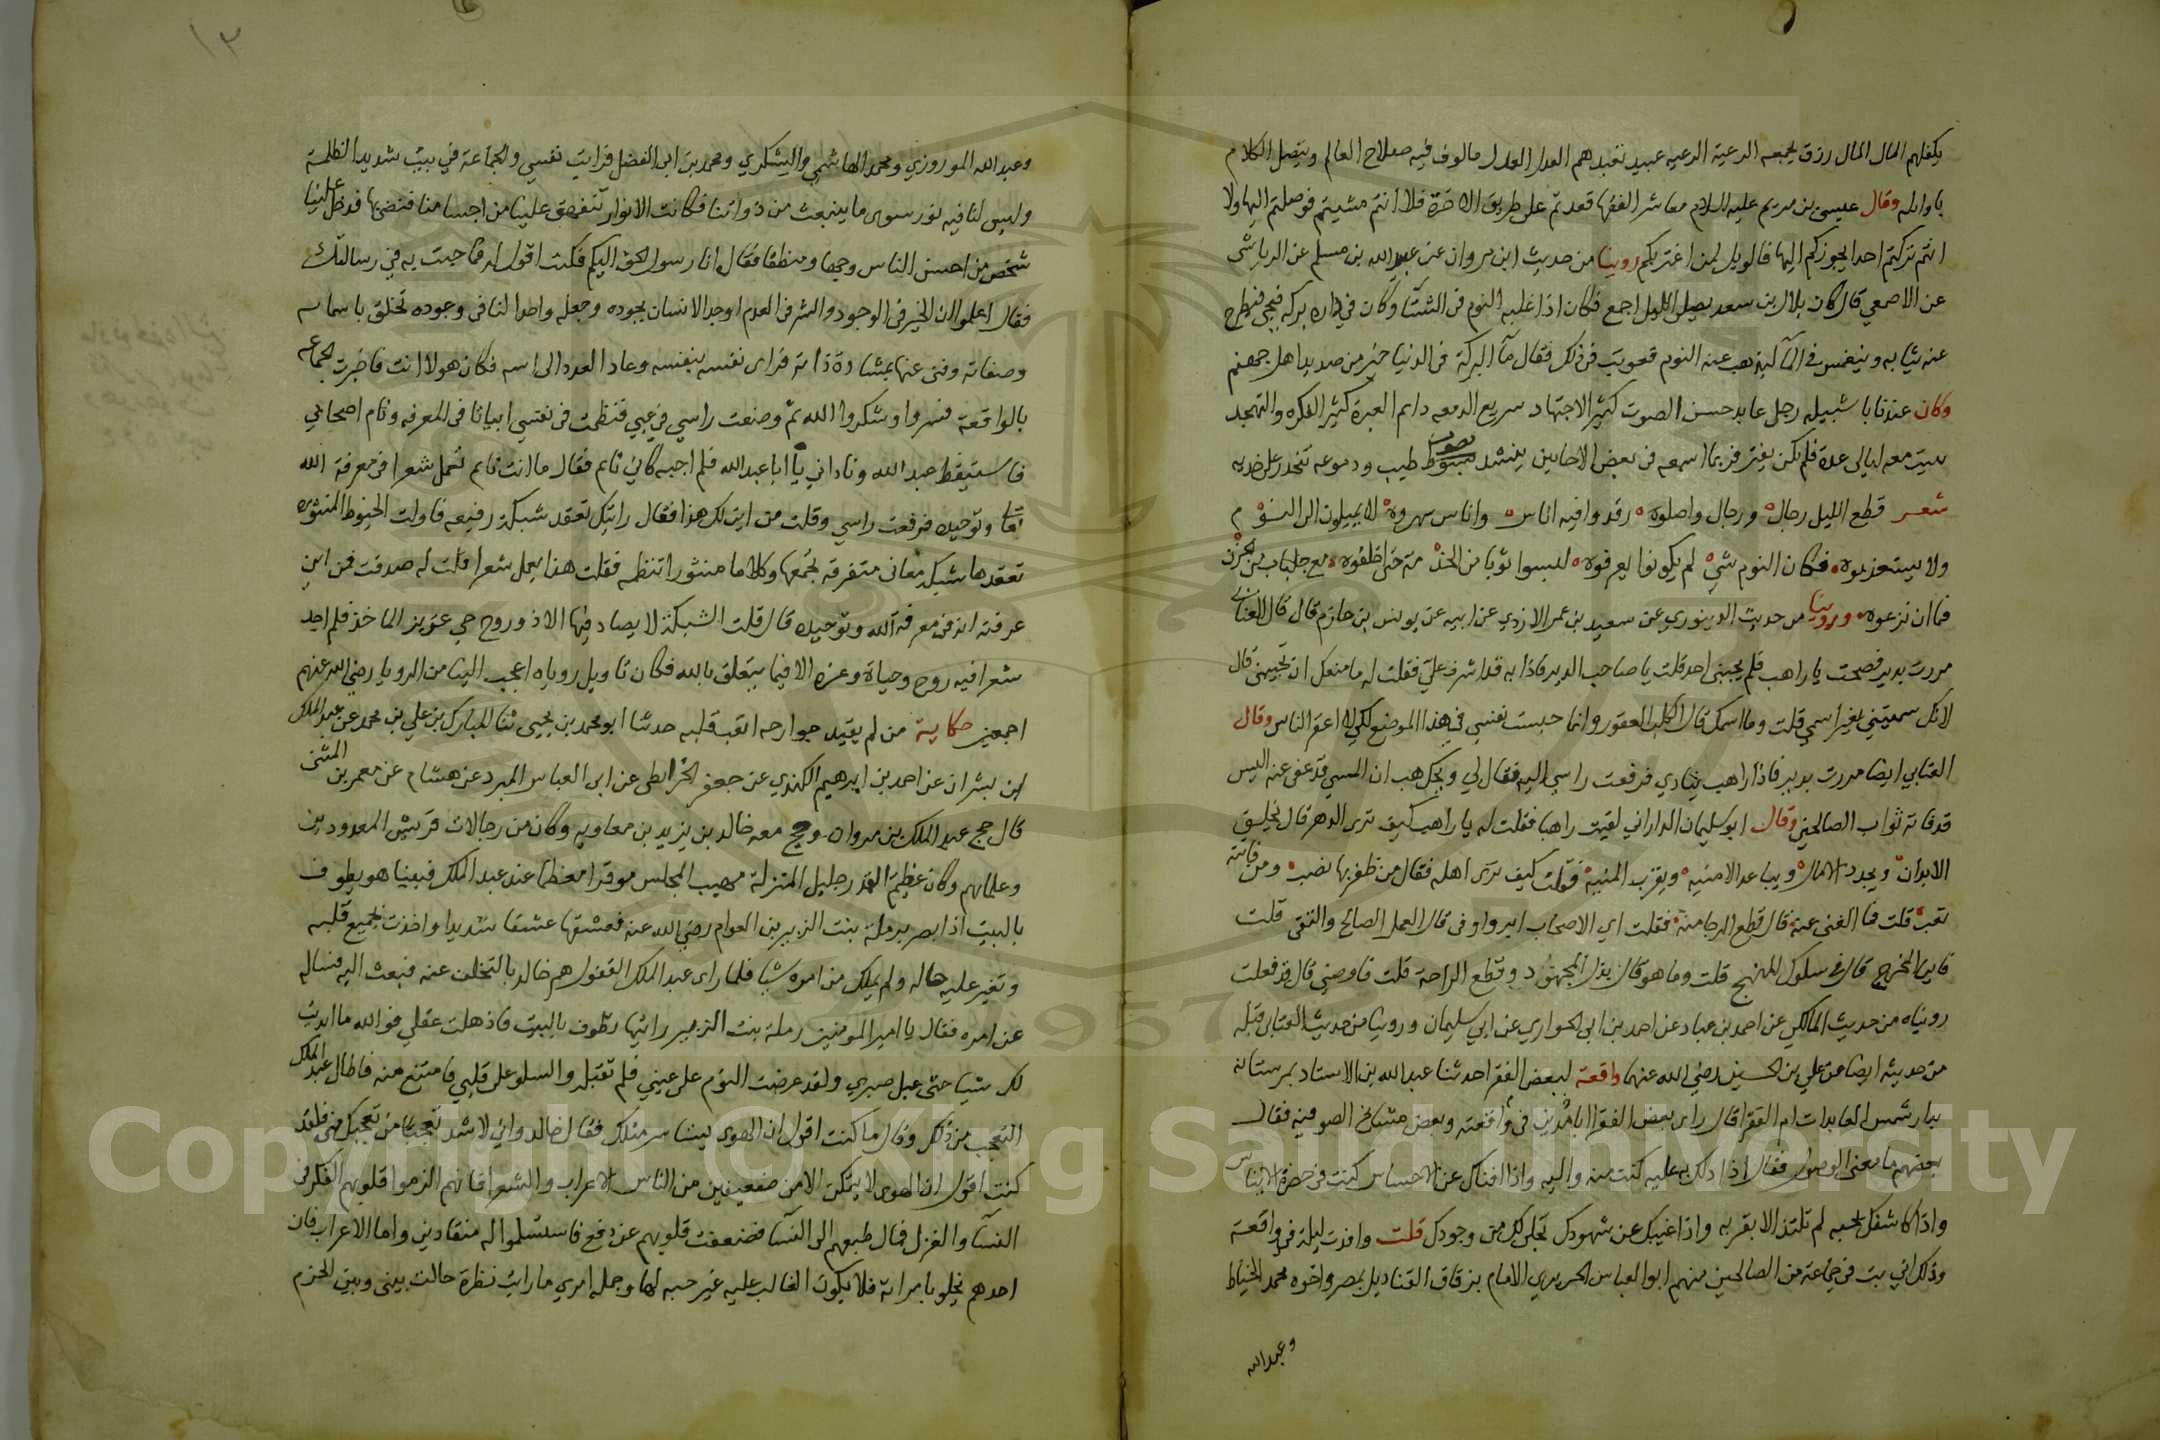 يكفلهم المال المال رزق تجمعه الرعية الرعيه عبيد تعبدهم العدل العدل مالوف فيه صلاح العالم ويتصل الكلام
باوله وقال عيسى بن مريم عليه السلام معاشر الفقها قعدتم على طريق الاخرة فلا انتم مشيتم فوصلتم اليها ولا
انتم تركتم احدا يجوزكم اليها فالويل لمن اغتر بكم روينا من حديث ابن مروان عن عبد الله بن مسلم عن الرياشي
عن الاصمعي قال كان بلال بن سعد يصلي الليل اجمع فكان اذا غلبه النوم في الشتا وكان في داره بركه فيجي فيطرح
عنه ثيابه وينغمس في الما ليذهب عنه النوم فعوتب في ذلك فقال ما البركة في الدنيا خير من صديد اهل جهنم
وكان عندنا باشبيله رجل عابد حسن الصوت كثير الاجتهاد سريع الدمعه دايم العبرة كثير الفكره والتهجد
بيت معه ليالي عدة فلم يكن يفتر فربما اسمعه في بعض الاحايين ينشد بصوت طيب ودموعه تنحدر على خديه
شعر قطع الليل رجال ورجال واصلوه رقد وافيه اناس واناس سهروه لا يميلون الى النوم
ولا يستعذبوه فكان النوم شي لم يكونوا يعرفوه لبسوا ثوبا من الخد مة حتى اخلقوه مع جلباب من الحزن
فما ان نزعوه وروينا من حديث الدينوري عن سعيد بن عمر الازدي عن ابيه عن يونس بن حازم قال قال العتابي
مررت بدير فصحت يا راهب فلم يجبني احد قلت يا صاحب الدير فاذا به قد اشرف علي فقلت له ما منعك ان تجيبني قال
لانك سميتني بغير اسمي قلت وما اسمك قال الكلب العقور وانما حبست نفسي في هذا الموضع لكي لا اعقر الناس وقال
العتابي ايضا مررت بدير فاذا راهب ينادي فرفعت راسي اليه فقال لي ويحك هب ان المسي قد عفى عنه اليس
قد فاته ثواب الصالحين وقال ابو سليمان الداراني لقيت راهبا فقلت له يا راهب كيف ترى الدهر قال يخلق
الابدان ويجدد الامال ويباعد الامنيه ويقرب المنيه قلت كيف ترى اهله فقال من ظفر بها نصب ومن فاتته
تعب قلت فما الغنى عنه قال قطع الرجا منه فقلت اي الاصحاب ابر واوفى قال العمل الصالح والتقى قلت
فاين المخرج قال في سلوك المنهج قلت وما هو قال بذل المجهود وقطع الراحة قلت فاوصني قال قد فعلت
روينا من حديث المالكي عن احمد بن عباد عن احمد بن ابي الحواري عن ابي سليمان وروينا من حديث العتابي قبله
من حديثه ايضا عن علي بن الحسين رضي الله عنهما واقعة لبعض الفقرا حدثنا عبد الله بن الاستاد بمرستانة
بدار شمس العابدات ام الفقرا قال راى بعض الفقرا ابا مدين في واقعته وبعض مشايخ الصوفيه فقال
بعضهم ما معنى الوصول فقال اذا دلك به عليه كنت منه واليه واذا افناك عن الاحساس كنت في حضرة الايناس
واذا كاشفك بحبه لم تلتذ الا بقربه واذا غيبك عن شهودك تجلى لك من وجودك قلت واخذت ليلة في واقعة
وذلك اني بت في جماعة من الصالحين منهم ابو العباس الحريري الامام بزقاق القناديل بمصر واخوه محمد الخياط
وعبد الله
١٣
وعبد الله الموروزي ومحمد الهاشمي واليشكري ومحمد بن ابي الفضل فرايت نفسي والجماعة في بيت شديد الظلمة
وليس لنا فيه نور سوى ما ينبعث من ذواتنا فكانت الانوار تتفهق علينا من اجسامنا فنضي بها فدخل علينا
شخص من احسن الناس وجها ومنطقا فقال انا رسول الحق اليكم فكنت اقول له فما جيت به في رسالتك
فقال اعلموا ان الخير في الوجود والشر في العدم اوجد الانسان بجوده وجعله واحدا لنا في وجوده تخلق باسمائه
وصفاته وفنى عنها بمشاهدة ذاته فراى نفسه بنفسه وعاد العدد الى اسه فكان هو لا انت فاخبرت الجماعه
بالواقعة فسروا وشكروا الله ثم وضعت راسي في عبي فنظمت في نفسي ابياتا في المعرفه ونام اصحابي
فاستيقظ عبد الله وناداني يا ابا عبد الله فلم اجبه كاني نايم فقال ما انت نايم تعمل شعرا في معرفة الله
تعالى وتوحيده فرفعت راسي وقلت من اين لك هذا فقال رايتك تعقد شبكة رفيعه فاولت الخيوط المنثوره
تعقدها شبكه معاني متفرقه تجمعها وكلاما منثورا تنظمه فقلت هذا يعمل شعرا قلت له صدقت فمن اين
عرفته انه في معرفة الله وتوحيده قال قلت الشبكة لا يصاد فيها الا ذو روح حي عزيز الماخذ فلم اجد
شعرا فيه روح وحياة وعزه الا فيما يتعلق بالله فكان تاويل روياه اعجب الينا من الرويا رضي الله عنهم
اجمعين حكاية من لم يقيد جوارحه اتعب قلبه حدثنا ابو محمد بن يحيى ثنا المبارك بن علي بن محمد عن عبد الملك
ابن بشران عن احمد بن ابرهيم الكندي عن جعفر الخرايطي عن ابي العباس المبرد عن هشام عن معمر بن المثنى
قال حج عبد الملك بن مروان وحج معه خالد بن يزيد بن معاويه وكان من رجالات قريش المعدودين
وعلمائهم وكان عظيم القدر جليل المنزلة مهيب المجلس موقرا معظما عند عبد الملك فبينا هو يطوف
بالبيت اذ ابصر برملة بنت الزبير بن العوام رضي الله عنه فعشقها عشقا شديدا واخذت بجميع قلبه
وتغير عليه حاله ولم يملك من امره شيا فلما راى عبد الملك القفول هم خالد بالتخلف عنه فبعث اليه فساله
عن امره فقال يا امير المومنين رملة بنت الزبير رايتها تطوف بالبيت فاذهلت عقلي فوالله ما ابديت
لك شيا حتى عيل صبري ولقد عرضت النوم على عيني فلم تقبله والسلو على قلبي فامتنع منه فاطال عبد الملك
التعجب من ذلك وقال ما كنت اقول ان الهوى يستاسر مثلك فقال خالد واني لاشد تعجبا من تعجبك مني فلقد
كنت اقول ان الهوى لا يتمكن الا من ضعيفين من الناس الاعراب والشعرا فانهم الزموا قلوبهم الفكر في
النسا والغزل فمال طبعهم الى النسا فضعفت قلوبهم عن دفع فاستسلموا له منقادين واما الاعراب فان
احدهم يخلو بامراته فلا يكون الغالب عليه غير حبه لها وجمله امري ما رايت نظرة حالت بيني وبين الحزم
Copyright © King Saud University
1957